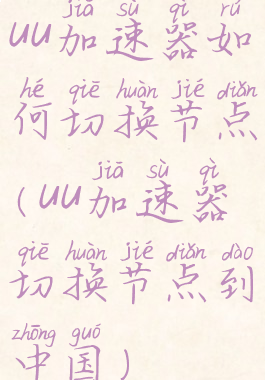 jiā sù qì rú
uu加速器如
hé qiē huàn jié diǎn
何切换节点
jiā sù qì
(uu加速器
qiē huàn jié diǎn dào
切换节点到
zhōng guó
中国)